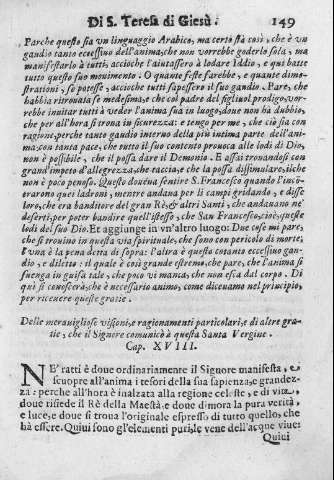 Di S. Teresa di Giesù. 149
Parche questo sia vn linguaggio Arabico, ma certo stà così, che è vn
gaudio tanto eccessiuo dell'anima, che non vorrebbe goderlo sola, ma
manifestarlo à tutti, acciòche l'aiutassero à lodare Iddio, e quì batte
tutto questo suo mouimento. O quante feste farebbe, e quante dimo-
strationi, se potesse, acciòche tutti sapessero il suo gaudio. Pare, che
habbia ritrouata se medesima, e che col padre del figliuol prodigo, vor-
rebbe inuitar tutti à veder l'anima sua in luogo, doue non hà dubbio,
che per all'hora si troua in sicurezza: e tengo per me, che ciò sia con
ragione, perche tanto gaudio interno della più intima parte dell'ani-
ma, con tanta pace, che tutto il suo contento prouoca alle lodi di Dio,
non è possibile, che il possa dare il Demonio. E assai trouandosi con
grand'impeto d'allegrezza, che taccia, e che la possa dissimulare, ilche
non è poco penoso. Questo doueua sentire S. Francesco quando l'incõ-
trarono quei ladroni, mentre andaua per li campi gridando, e disse
loro, che era banditore del gran Rè, & altri Santi, che andauano ne'
deserti, per poter bandire quell'istesso, che San Francesco, cioè, queste
lodi del suo Dio. Et aggiunge in vn'altro luogo: Due cose mi pare,
che si trouino in questa via spirituale, che sono con pericolo di morte;
l'vna è la pena detta di sopra: l'altra è questo tanto eccessiuo gau-
dio, e diletto: il quale è così grande estremo, che pare, che l'anima si
suenga in guisa tale, che poco vi manca, che non esca dal corpo. Di
quì si conoscerà, che è necessario animo, come diceuamo nel principio,
per riceuere queste gratie.
Delle merauigliose visioni, e ragionamenti particolari, e di altre gra-
tie, che il Signore comunicò à questa Santa Vergine.
Cap. XVIII.
NE' ratti è doue ordinariamente il Signore manifesta, e
scuopre all'anima i tesori della sua sapienza, e grandez-
za: perche all'hora è inalzata alla regione celeste, e di vita,
doue risiede il Rè della Maestà, e doue dimora la pura verità,
e luce, e doue si troua l'originale espresso di tutto quello, che
hà essere. Quiui sono gl'elementi puri, le vene dell'acque viue:
Quiui